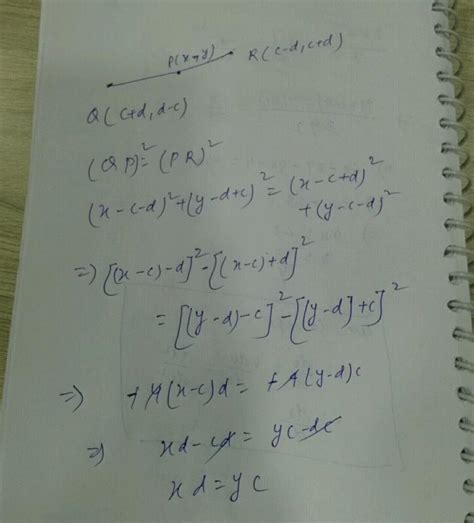 P(x,y) R(c-d, c+d)
Q(c+d, d-c)
(QP)² = (PR)²
(x-c-d)² + (y-d+c)² = (x-c+d)²
+ (y-c-d)²
=> [(x-c)-d]² - [(x-c)+d]²
= [(y-d)-c]² - [(y-d]+c]²
=> +4(x-c)d = +4(y-d)c
=> xd-cd = yc-dc
xd = yc